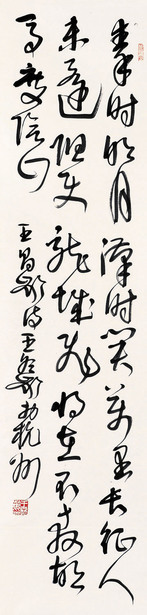 秦时明月汉时关万里长征人
未还但使龙城飞将在不教胡
马度阴山
王昌龄诗王冬龄于杭州